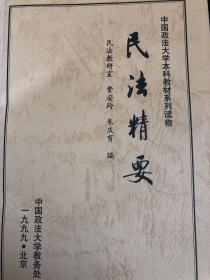 中国政法大学本科教材系列读物
民法精要
民法教研室 费安玲 朱庆育 编
中国政法大学教务处
一九九九·北京